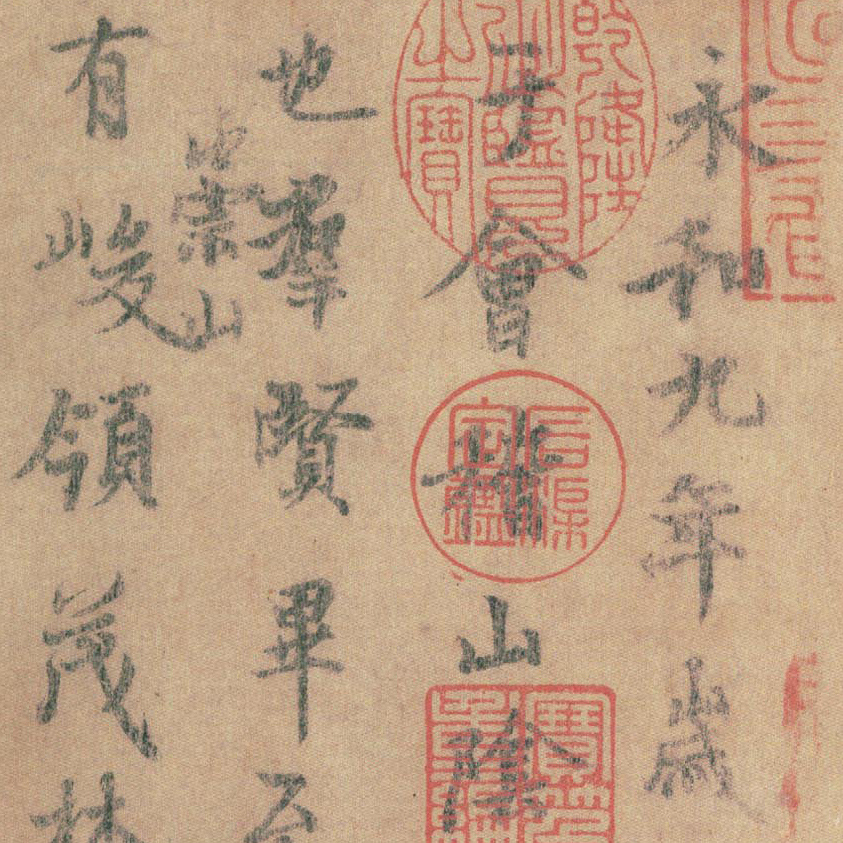 永和九年歲
于會稽山陰
也羣賢畢至
崇山
有峻領茂林
乾隆御覽之寶
石渠定鑑
寶笈重編